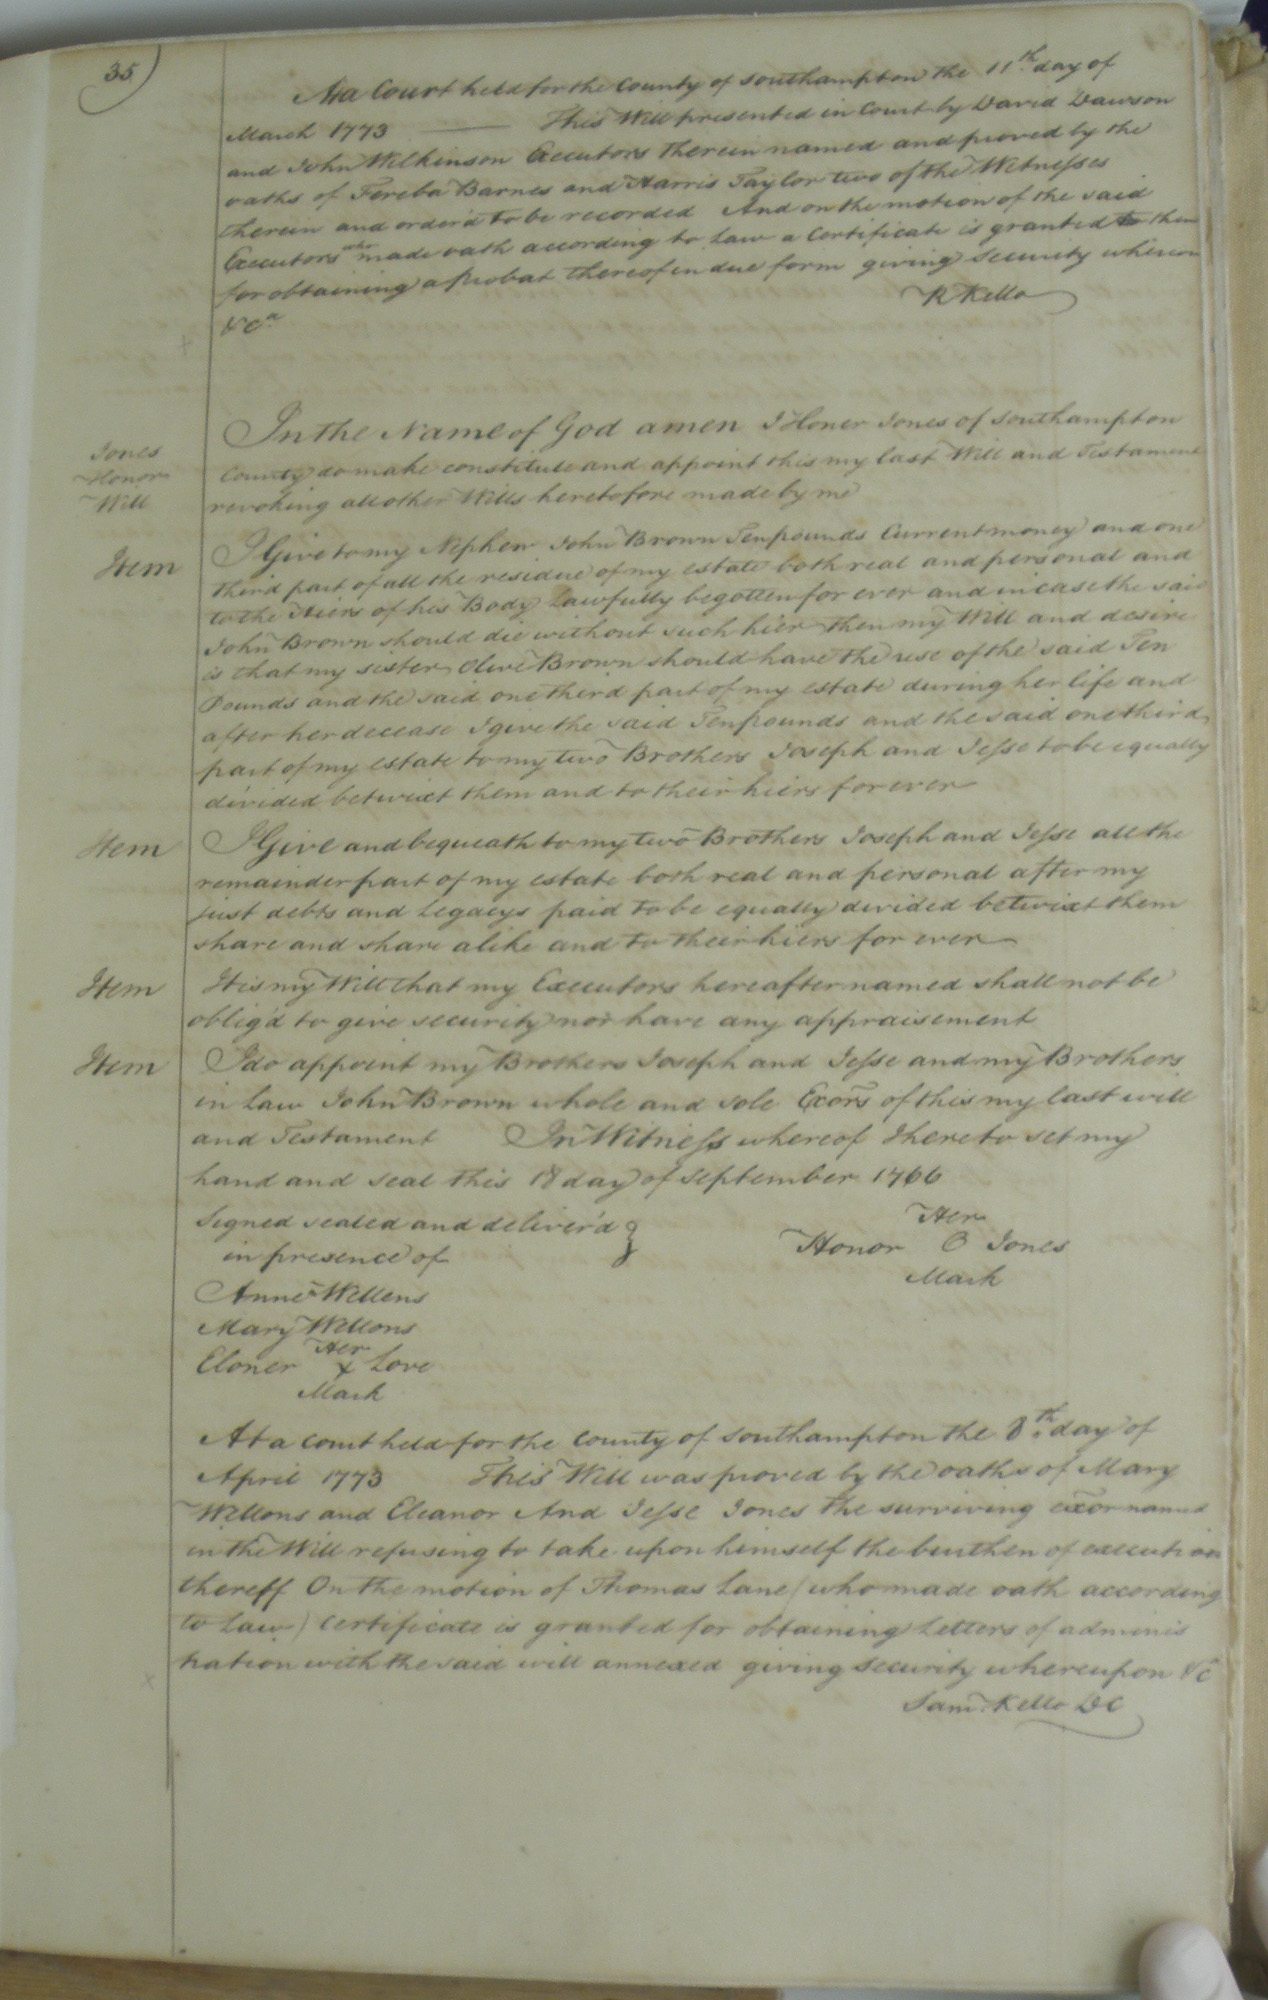 35
At a Court held for the County of Southampton the 11th day of
March 1773 —— This Will presented in Court by David Dawson
and John Wilkinson Executors therein named and proved by the
oaths of Fereba Barnes and Harris Taylor two of the Witnesses
therein and order'd to be recorded And on the motion of the said
Executors who made oath according to Law a Certificate is granted to them
for obtaining a Probat thereof in due form giving Security whereon
&ca
R Kello
Jones
Honor
Will
In the Name of God amen I Honer Jones of Southampton
County do make constitute and appoint this my last Will and Testament
revoking all other Wills heretofore made by me
Item
I Give to my Nephew John Brown Ten pounds Current money and one
third part of all the residue of my estate both real and personal and
to the Heirs of his Body Lawfully begotten for ever and in case the said
John Brown should die without such hier then my Will and desire
is that my sister Olive Brown should have the use of the said Ten
Pounds and the said one third part of my estate during her life and
after her decease I give the said Ten pounds and the said one third
part of my estate to my two Brothers Joseph and Jesse to be equally
divided betwixt them and to their hiers for ever
Item
I Give and bequeath to my two Brothers Joseph and Jesse all the
remainder part of my estate both real and personal after my
just debts and Legacys paid to be equally divided betwixt them
share and share alike and to their hiers for ever
Item
It is my Will that my Executors hereafter named shall not be
oblig'd to give security nor have any appraisement
Item
I do appoint my Brothers Joseph and Jesse and my Brothers
in Law John Brown whole and sole Exors of this my last will
and Testament In Witness whereof I hereto set my
hand and seal this 18 day of September 1766
Signed sealed and deliver'd }
in presence of
Her
Honor O Jones
Mark
Anne Wellens
Mary Wellons
Her
Eloner x Love
Mark
At a Court held for the County of Southampton the 8th day of
April 1773 This Will was proved by the oaths of Mary
Wellons and Eleanor And Jesse Jones the surviving exor named
in the Will refusing to take upon himself the burthen of execution
thereff On the motion of Thomas Lane (who made oath according
to Law) Certificate is granted for obtaining Letters of adminis
tration with the said will annexed giving security whereupon &c
Sam Kello DC